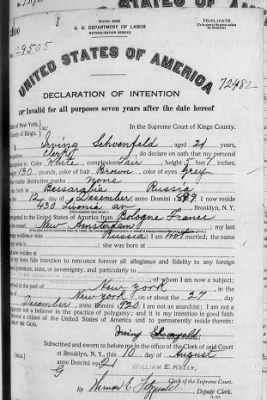 U. S. DEPARTMENT OF LABOR
NATURALIZATION SERVICE
TRIPLICATE
No. 29505
UNITED STATES OF AMERICA
72482
DECLARATION OF INTENTION
Invalid for all purposes seven years after the date hereof
In the Supreme Court of Kings County.
County of Kings,
Irving Schoenfeld, aged 21 years,
Clerk, do declare on oath that my personal
Color White, complexion Fair, height 5 feet 7 inches,
130 pounds, color of hair Brown, color of eyes Grey
none
Bessarabia Russia
day of December, anno Domini 1899; I now reside
at 438 Livonia av Brooklyn, N.Y.
to the United States of America from Bologne France
New Amsterdam; my last
Russia. I am not married; the name
she was born at
my bona fide intention to renounce forever all allegiance and fidelity to any foreign
prince, potentate, state, or sovereignty, and particularly to
of whom I am now a subject;
New York
New York on or about the 27 day
December, anno Domini 1920; I am not an anarchist; I am not a
polygamist nor a believer in the practice of polygamy; and it is my intention in good faith
to become a citizen of the United States of America and to permanently reside therein:
SO HELP ME GOD.
Irving Schoenfeld
Subscribed and sworn to before me in the office of the Clerk of said Court
at Brooklyn, N. Y., this 10 day of August
anno Domini 1921
WILLIAM E. KELLY,
Clerk of the Supreme Court.
Deputy Clerk.